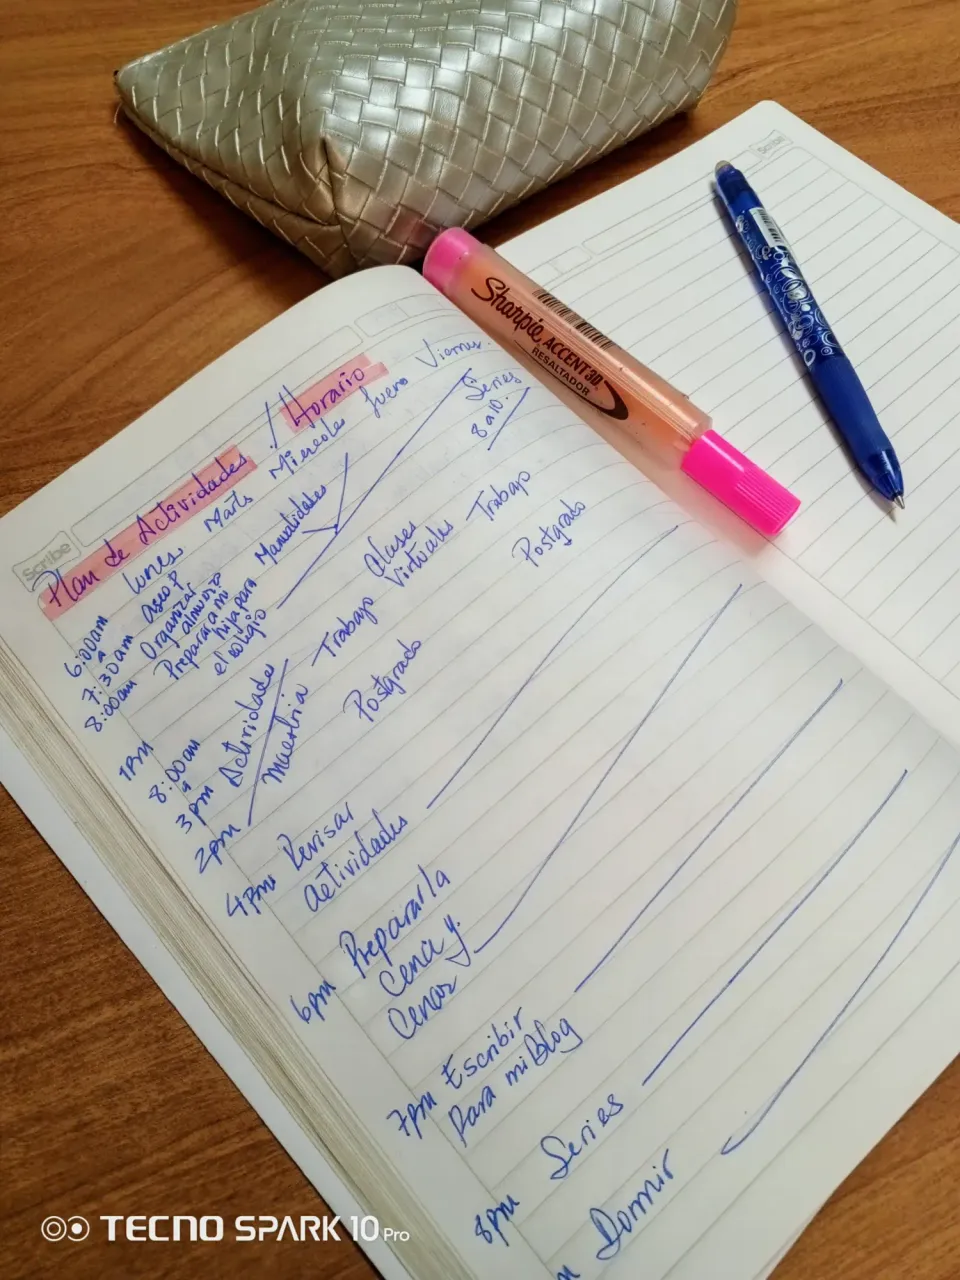 Scribe
Scribe
Sharpie ACCENT 3D
RESALTADOR
Plan de Actividades / Horario
lunes Marts Miercoles Jueves Viernes.
6:00am
a
7:30am
8:00am
aseo P
Organizar
almuerzo
Preparar a mi
hija para
el colegio
Manualidades
Series
8 a 10.
1pm
8:00am
a
3pm
2pm
Actividade
maestria
Trabajo
Postgrado
Clases
Virtuales
Trabajo
Postgrado
4pm Revisar
actividades
6pm Preparar la
Cena y.
Cenar
7pm Escribir
para mi Blog
8pm Series
m Dormir
TECNO SPARK 10 Pro